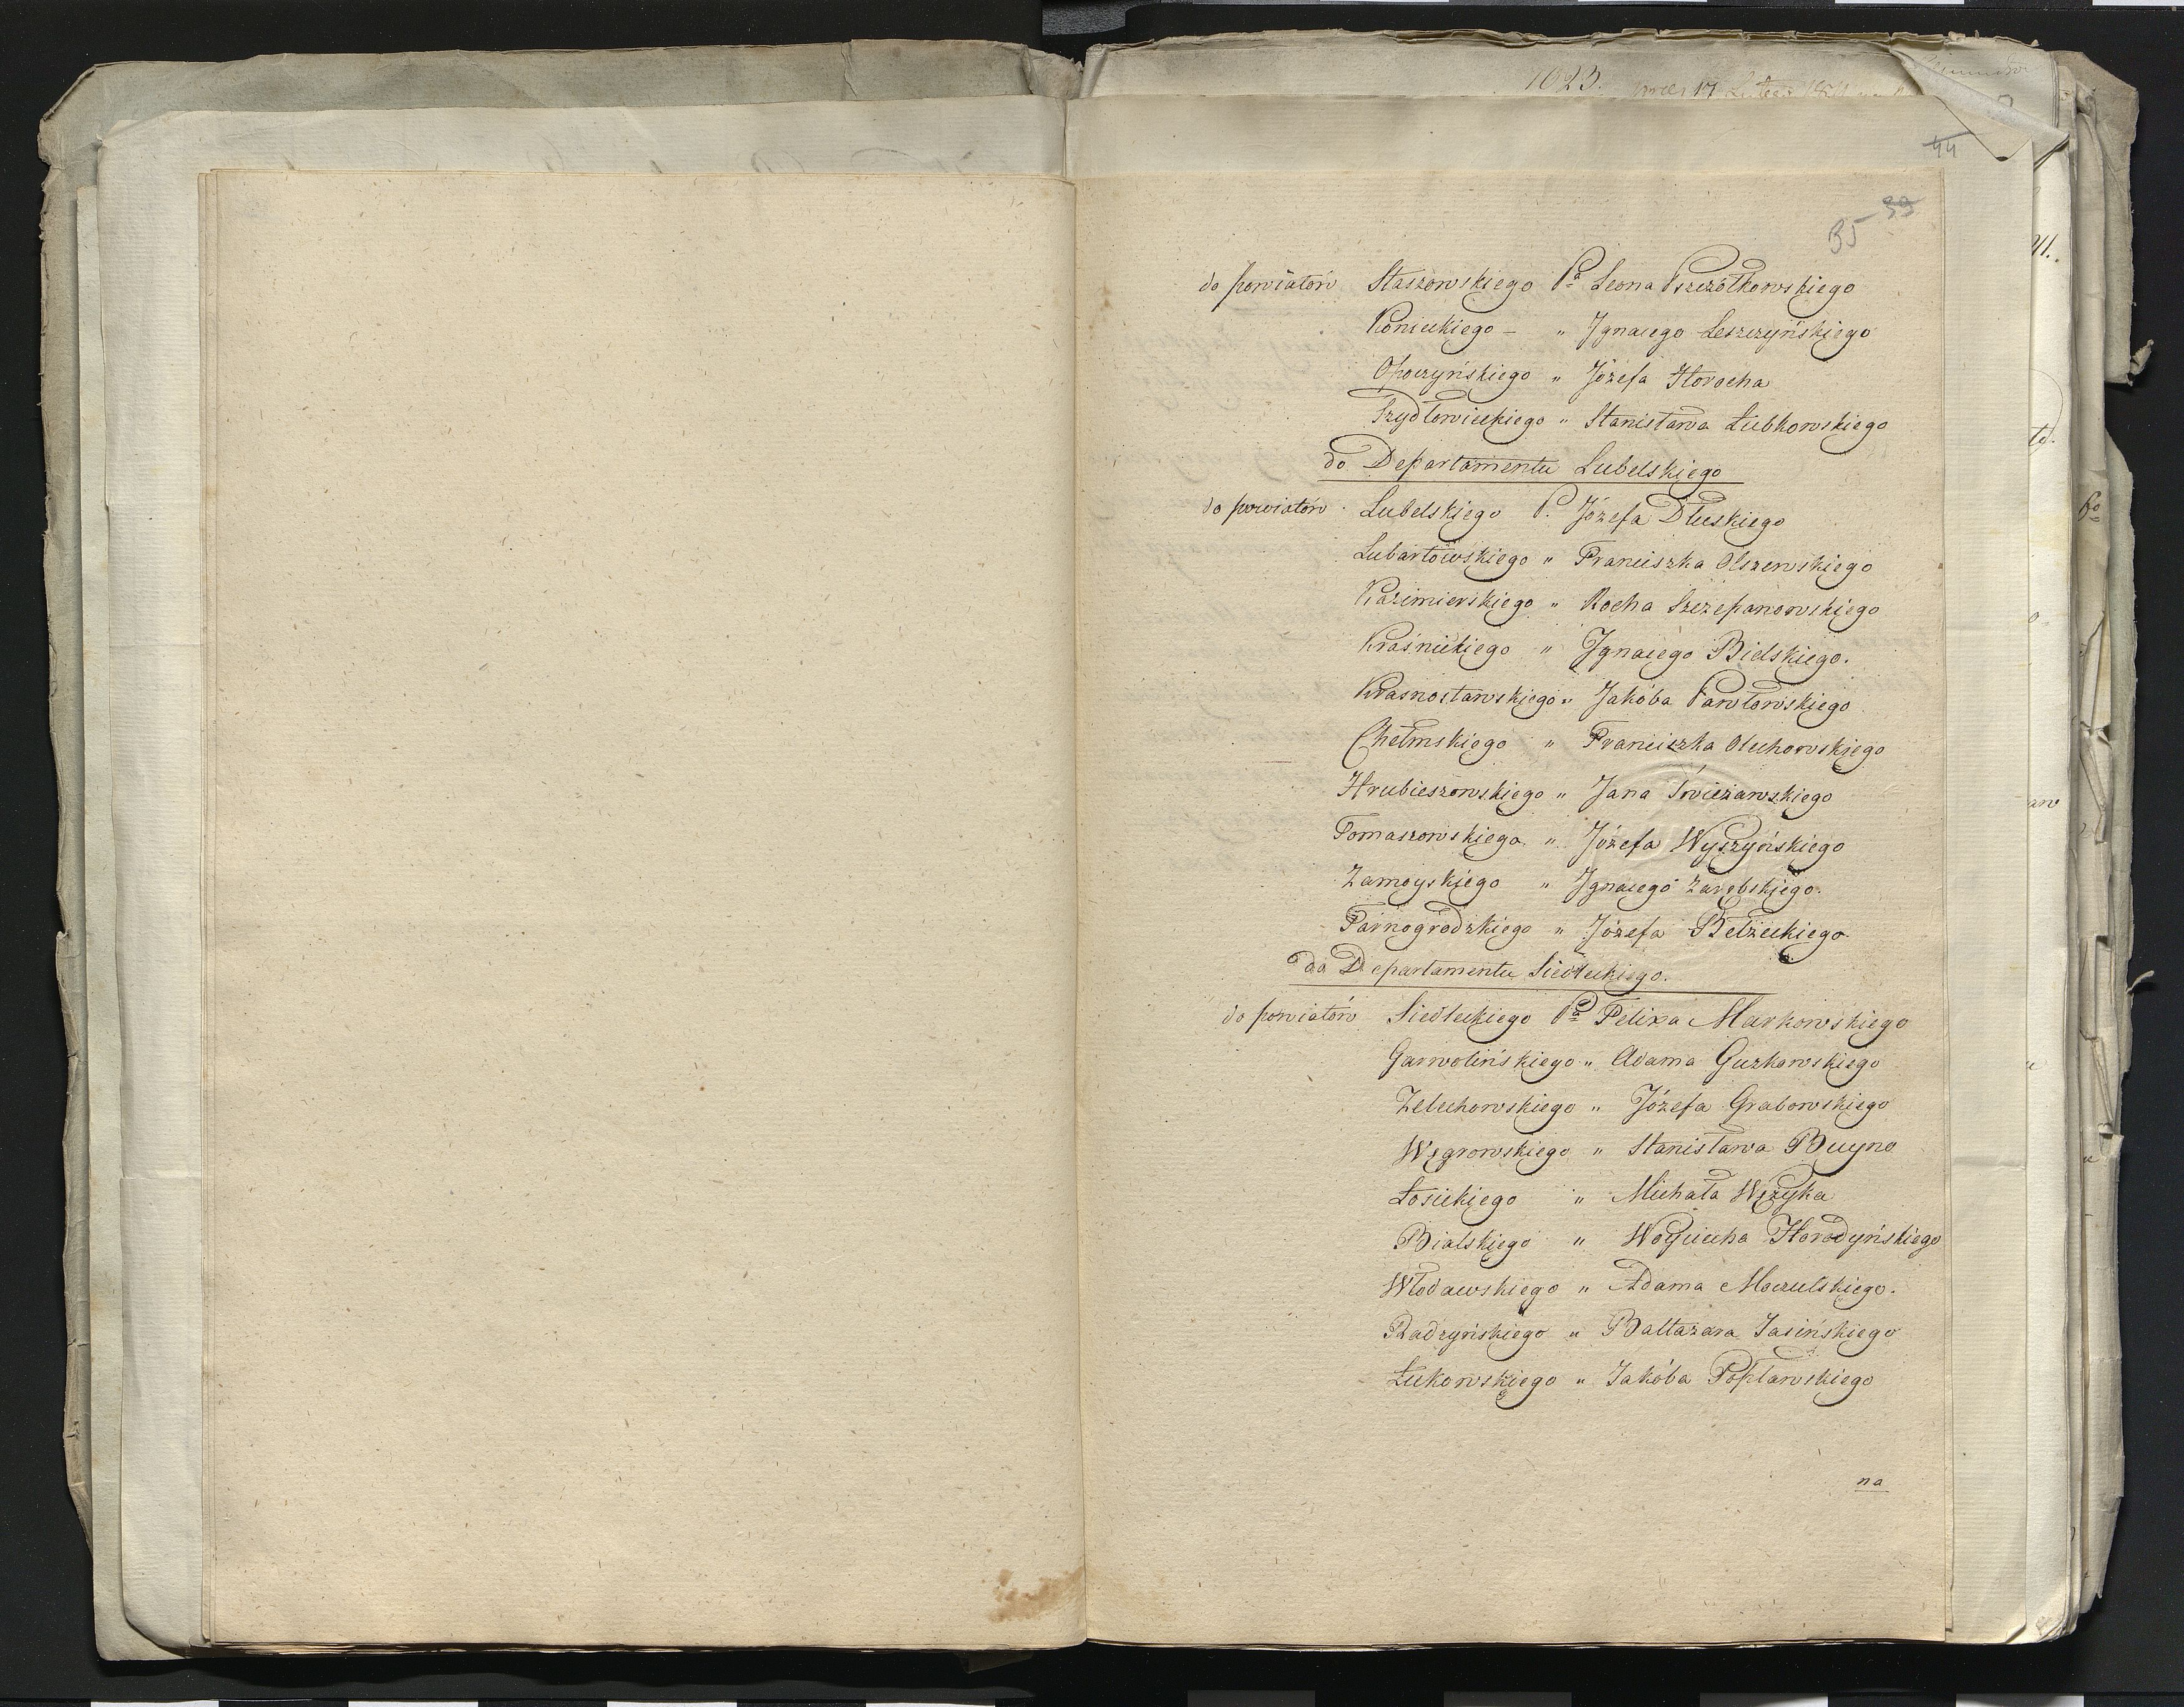 1623.
44
39
35
do powiatów Staszowskiego Pa Leona Pszczółkowskiego
Konieckiego – " Jgnacego Leszczyńskiego
Opoczyńskiego " Józefa Horocha
Szydłowieckiego " Stanisława Łubkowskiego
do Departamentu Lubelskiego
do powiatów Lubelskiego P. Józefa Dłuskiego
Lubartowskiego " Franciszka Olszewskiego
Kazimierskiego " Rocha Szczepanowskiego
Kraśnickiego " Jgnacego Bielskiego.
Krasnostawskiego " Jakóba Pawłowskiego
Chełmskiego " Franciszka Oluchowskiego
Hrubieszowskiego " Jana Świeżawskiego
Tomaszowskiego " Józefa Wyszyńskiego
Zamoyskiego " Jgnacego Zarębskiego.
Tarnogrodzkiego " Józefa Bełżeckiego
do Departamentu Siedleckiego.
do powiatów Siedleckiego Pa Felixa Markowskiego
Garwolińskiego " Adama Guzkowskiego
Żelechowskiego " Józefa Grabowskiego
Węgrowskiego " Stanisława Buyno
Łosickiego " Michała Wężyka
Bialskiego " Woyciecha Horodyńskiego
Włodawskiego " Adama Moczulskiego.
Radzyńskiego " Baltazara Jasińskiego
Łukowskiego " Jakóba Popławskiego
na